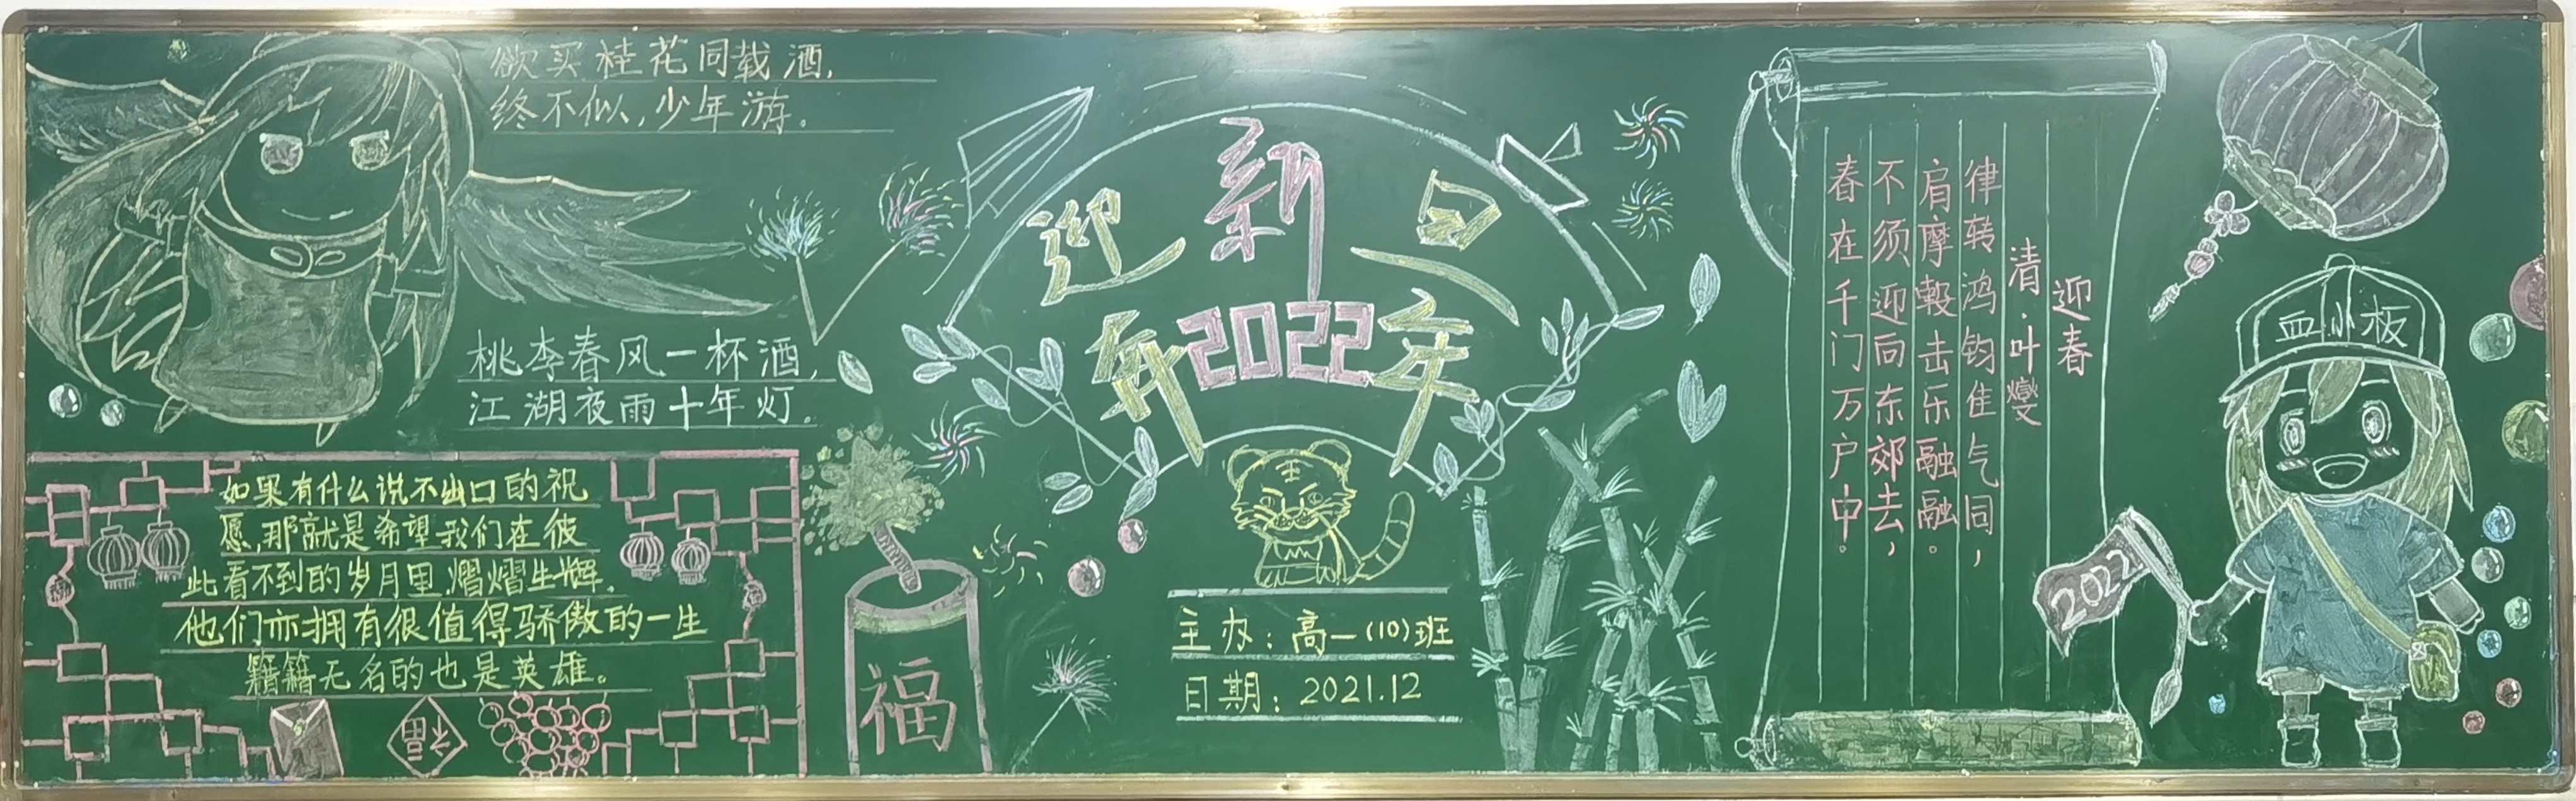 欲买桂花同载酒，
终不似，少年游。
桃李春风一杯酒，
江湖夜雨十年灯。
如果有什么说不出口的祝
愿，那就是希望我们在彼
此看不到的岁月里熠熠生辉。
他们亦拥有很值得骄傲的一生
籍籍无名的也是英雄。
福
福
迎新旦
奔2022年
主办：高一(10)班
日期：2021.12
迎春
清·叶燮
律转鸿钧佳气同，
肩摩毂击乐融融。
不须迎向东郊去，
春在千门万户中。
血小板
2022